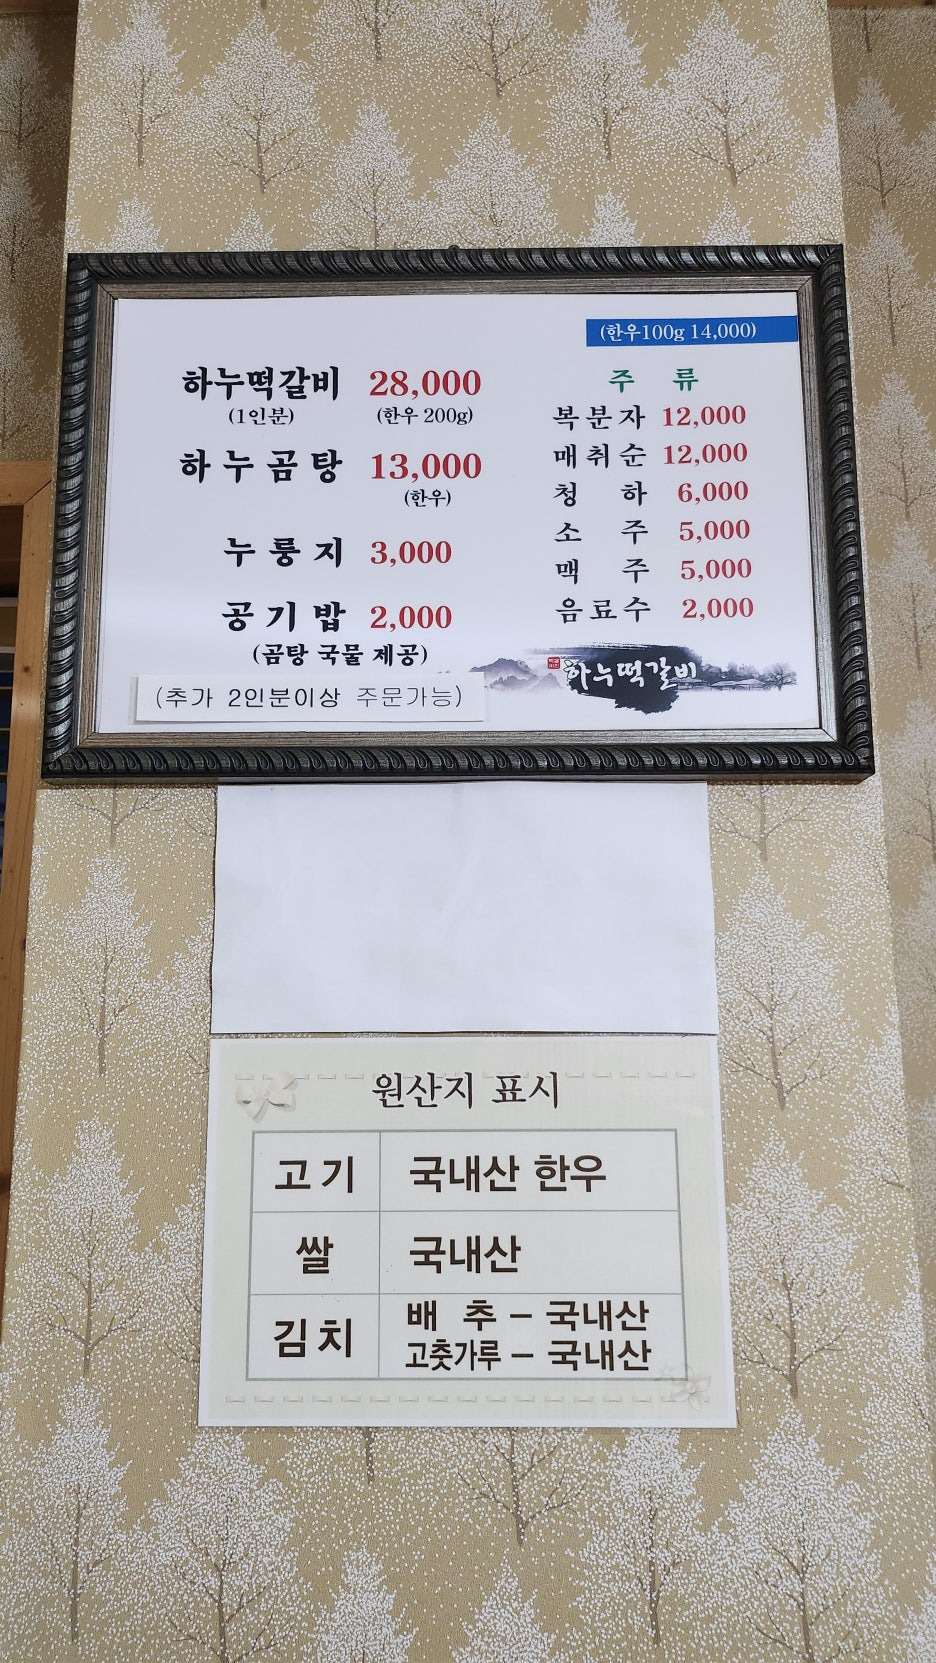 (한우100g 14,000)
하누떡갈비 28,000
(1인분) (한우 200g)
하누곰탕 13,000
(한우)
누룽지 3,000
공기밥 2,000
(곰탕 국물 제공)
(추가 2인분이상 주문가능)
주 류
복분자 12,000
매취순 12,000
청 하 6,000
소 주 5,000
맥 주 5,000
음료수 2,000
하누떡갈비
원산지 표시
고기 국내산 한우
쌀 국내산
김치 배 추 - 국내산
고춧가루 - 국내산